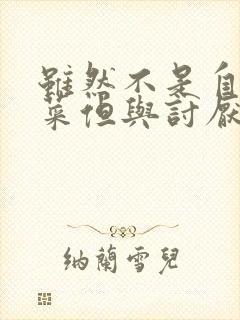 雖然不是自
菜但與討厭
納蘭雪兒